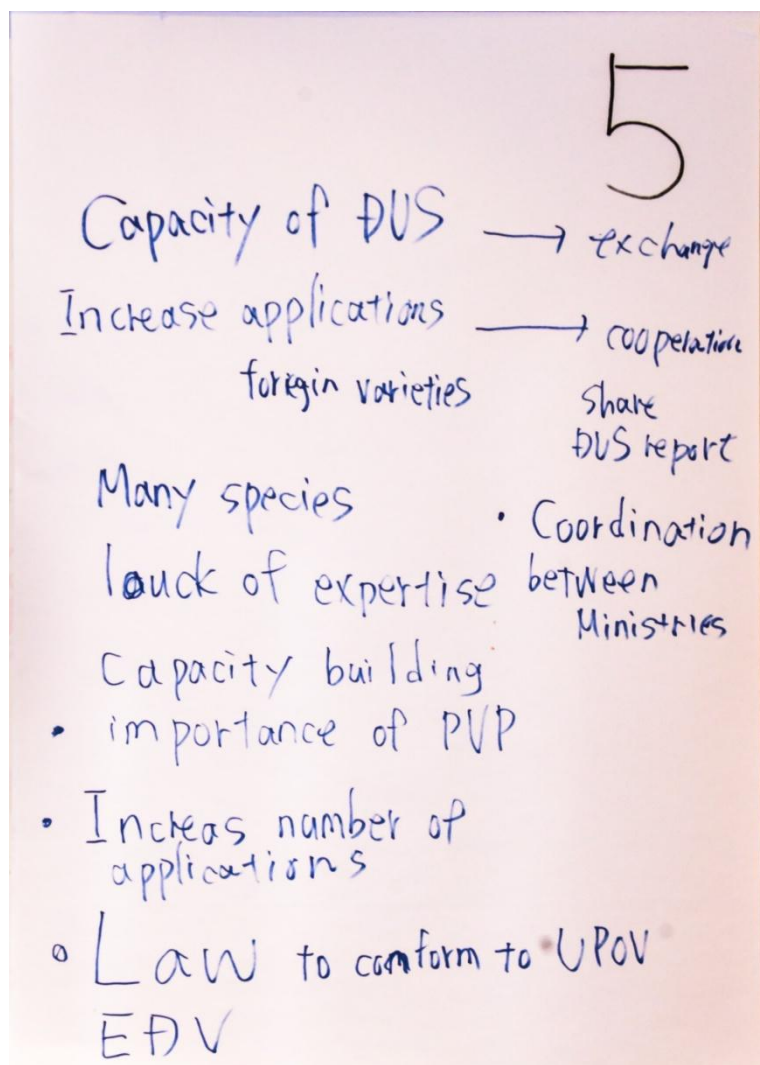 5
Capacity of ĐUS → exchange
Increase applications → cooperation
foregin varieties
share
ĐUS report
Many species
• Coordination
between
Ministries
lauck of expertise
Capacity building
• importance of PVP
• Increas number of
applications
• Law to comform to UPOV
EĐV